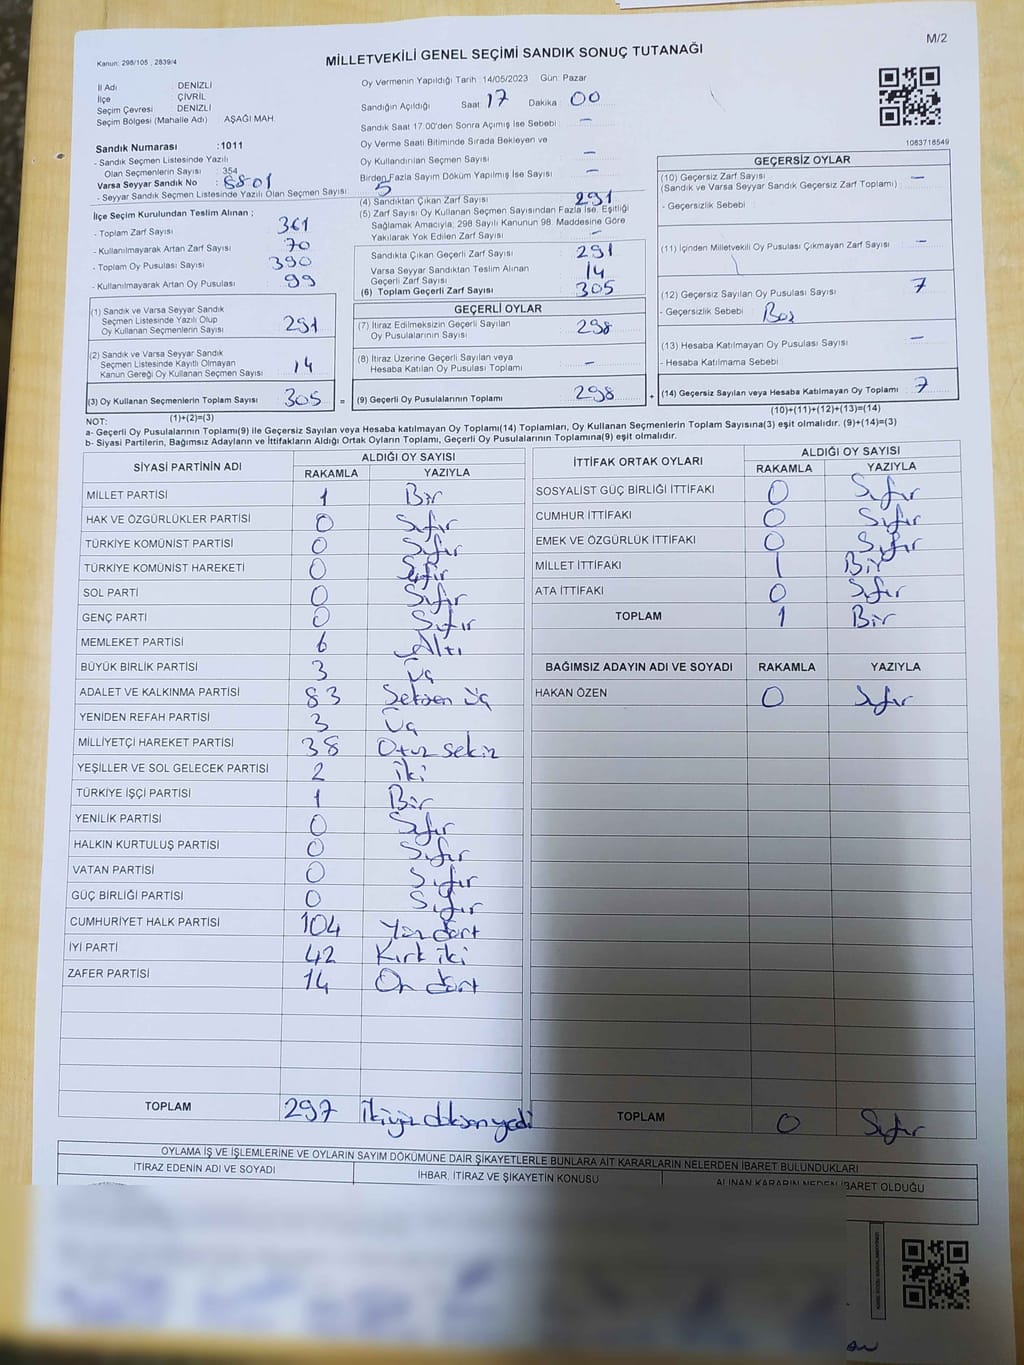 M/2
Kanun: 298/105 , 2839/4
MİLLETVEKİLİ GENEL SEÇİMİ SANDIK SONUÇ TUTANAĞI
İl Adı : DENİZLİ
İlçe : ÇİVRİL
Seçim Çevresi : DENİZLİ
Seçim Bölgesi (Mahalle Adı) : AŞAĞI MAH.
Sandık Numarası : 1011
- Sandık Seçmen Listesinde Yazılı
Olan Seçmenlerin Sayısı : 354
Varsa Seyyar Sandık No : 8801
- Seyyar Sandık Seçmen Listesinde Yazılı Olan Seçmen Sayısı : 5
İlçe Seçim Kurulundan Teslim Alınan ;
- Toplam Zarf Sayısı : 361
- Kullanılmayarak Artan Zarf Sayısı : 70
- Toplam Oy Pusulası Sayısı : 390
- Kullanılmayarak Artan Oy Pusulası : 99
(1) Sandık ve Varsa Seyyar Sandık
Seçmen Listesinde Yazılı Olup
Oy Kullanan Seçmenlerin Sayısı : 291
(2) Sandık ve Varsa Seyyar Sandık
Seçmen Listesinde Kayıtlı Olmayan
Kanun Gereği Oy Kullanan Seçmen Sayısı : 14
(3) Oy Kullanan Seçmenlerin Toplam Sayısı : 305
(1)+(2)=(3)
Oy Vermenin Yapıldığı Tarih :14/05/2023 Gün: Pazar
Sandığın Açıldığı Saat : 17 Dakika : 00
Sandık Saat 17:00'den Sonra Açımış İse Sebebi : -
Oy Verme Saati Bitiminde Sırada Bekleyen ve
Oy Kullandırılan Seçmen Sayısı : -
Birden Fazla Sayım Döküm Yapılmış İse Sayısı : -
(4) Sandıktan Çıkan Zarf Sayısı : 291
(5) Zarf Sayısı Oy Kullanan Seçmen Sayısından Fazla İse, Eşitliği
Sağlamak Amacıyla, 298 Sayılı Kanunun 98. Maddesine Göre
Yakılarak Yok Edilen Zarf Sayısı : -
Sandıkta Çıkan Geçerli Zarf Sayısı : 291
Varsa Seyyar Sandıktan Teslim Alınan
Geçerli Zarf Sayısı : 14
(6) Toplam Geçerli Zarf Sayısı : 305
GEÇERLİ OYLAR
(7) İtiraz Edilmeksizin Geçerli Sayılan
Oy Pusulalarının Sayısı : 298
(8) İtiraz Üzerine Geçerli Sayılan veya
Hesaba Katılan Oy Pusulası Toplamı : -
= (9) Geçerli Oy Pusulalarının Toplamı : 298
1063718549
GEÇERSİZ OYLAR
(10) Geçersiz Zarf Sayısı : -
(Sandık ve Varsa Seyyar Sandık Geçersiz Zarf Toplamı)
- Geçersizlik Sebebi :
(11) İçinden Milletvekili Oy Pusulası Çıkmayan Zarf Sayısı : -
(12) Geçersiz Sayılan Oy Pusulası Sayısı : 7
- Geçersizlik Sebebi : Boş
(13) Hesaba Katılmayan Oy Pusulası Sayısı : -
- Hesaba Katılmama Sebebi :
+ (14) Geçersiz Sayılan veya Hesaba Katılmayan Oy Toplamı : 7
(10)+(11)+(12)+(13)=(14)
NOT:
a- Geçerli Oy Pusulalarının Toplamı(9) ile Geçersiz Sayılan veya Hesaba katılmayan Oy Toplamı(14) Toplamları, Oy Kullanan Seçmenlerin Toplam Sayısına(3) eşit olmalıdır. (9)+(14)=(3)
b- Siyasi Partilerin, Bağımsız Adayların ve İttifakların Aldığı Ortak Oyların Toplamı, Geçerli Oy Pusulalarının Toplamına(9) eşit olmalıdır.
SİYASİ PARTİNİN ADI ALDIĞI OY SAYISI
RAKAMLA YAZIYLA
MİLLET PARTİSİ 1 Bir
HAK VE ÖZGÜRLÜKLER PARTİSİ 0 Sıfır
TÜRKİYE KOMÜNİST PARTİSİ 0 Sıfır
TÜRKİYE KOMÜNİST HAREKETİ 0 Sıfır
SOL PARTİ 0 Sıfır
GENÇ PARTİ 0 Sıfır
MEMLEKET PARTİSİ 6 Altı
BÜYÜK BİRLİK PARTİSİ 3 Üç
ADALET VE KALKINMA PARTİSİ 83 Seksen üç
YENİDEN REFAH PARTİSİ 3 Üç
MİLLİYETÇİ HAREKET PARTİSİ 38 Otuz sekiz
YEŞİLLER VE SOL GELECEK PARTİSİ 2 iki
TÜRKİYE İŞÇİ PARTİSİ 1 Bir
YENİLİK PARTİSİ 0 Sıfır
HALKIN KURTULUŞ PARTİSİ 0 Sıfır
VATAN PARTİSİ 0 Sıfır
GÜÇ BİRLİĞİ PARTİSİ 0 Sıfır
CUMHURİYET HALK PARTİSİ 104 Yüz dört
İYİ PARTİ 42 Kırk iki
ZAFER PARTİSİ 14 On dört
TOPLAM 297 İkiyüz doksan yedi
İTTİFAK ORTAK OYLARI ALDIĞI OY SAYISI
RAKAMLA YAZIYLA
SOSYALİST GÜÇ BİRLİĞİ İTTİFAKI 0 Sıfır
CUMHUR İTTİFAKI 0 Sıfır
EMEK VE ÖZGÜRLÜK İTTİFAKI 0 Sıfır
MİLLET İTTİFAKI 1 Bir
ATA İTTİFAKI 0 Sıfır
TOPLAM 1 Bir
BAĞIMSIZ ADAYIN ADI VE SOYADI RAKAMLA YAZIYLA
HAKAN ÖZEN 0 Sıfır
TOPLAM 0 Sıfır
OYLAMA İŞ VE İŞLEMLERİNE VE OYLARIN SAYIM DÖKÜMÜNE DAİR ŞİKAYETLERLE BUNLARA AİT KARARLARIN NELERDEN İBARET BULUNDUKLARI
İTİRAZ EDENİN ADI VE SOYADI İHBAR, İTİRAZ VE ŞİKAYETİN KONUSU ALINAN KARARIN NEDEN İBARET OLDUĞU